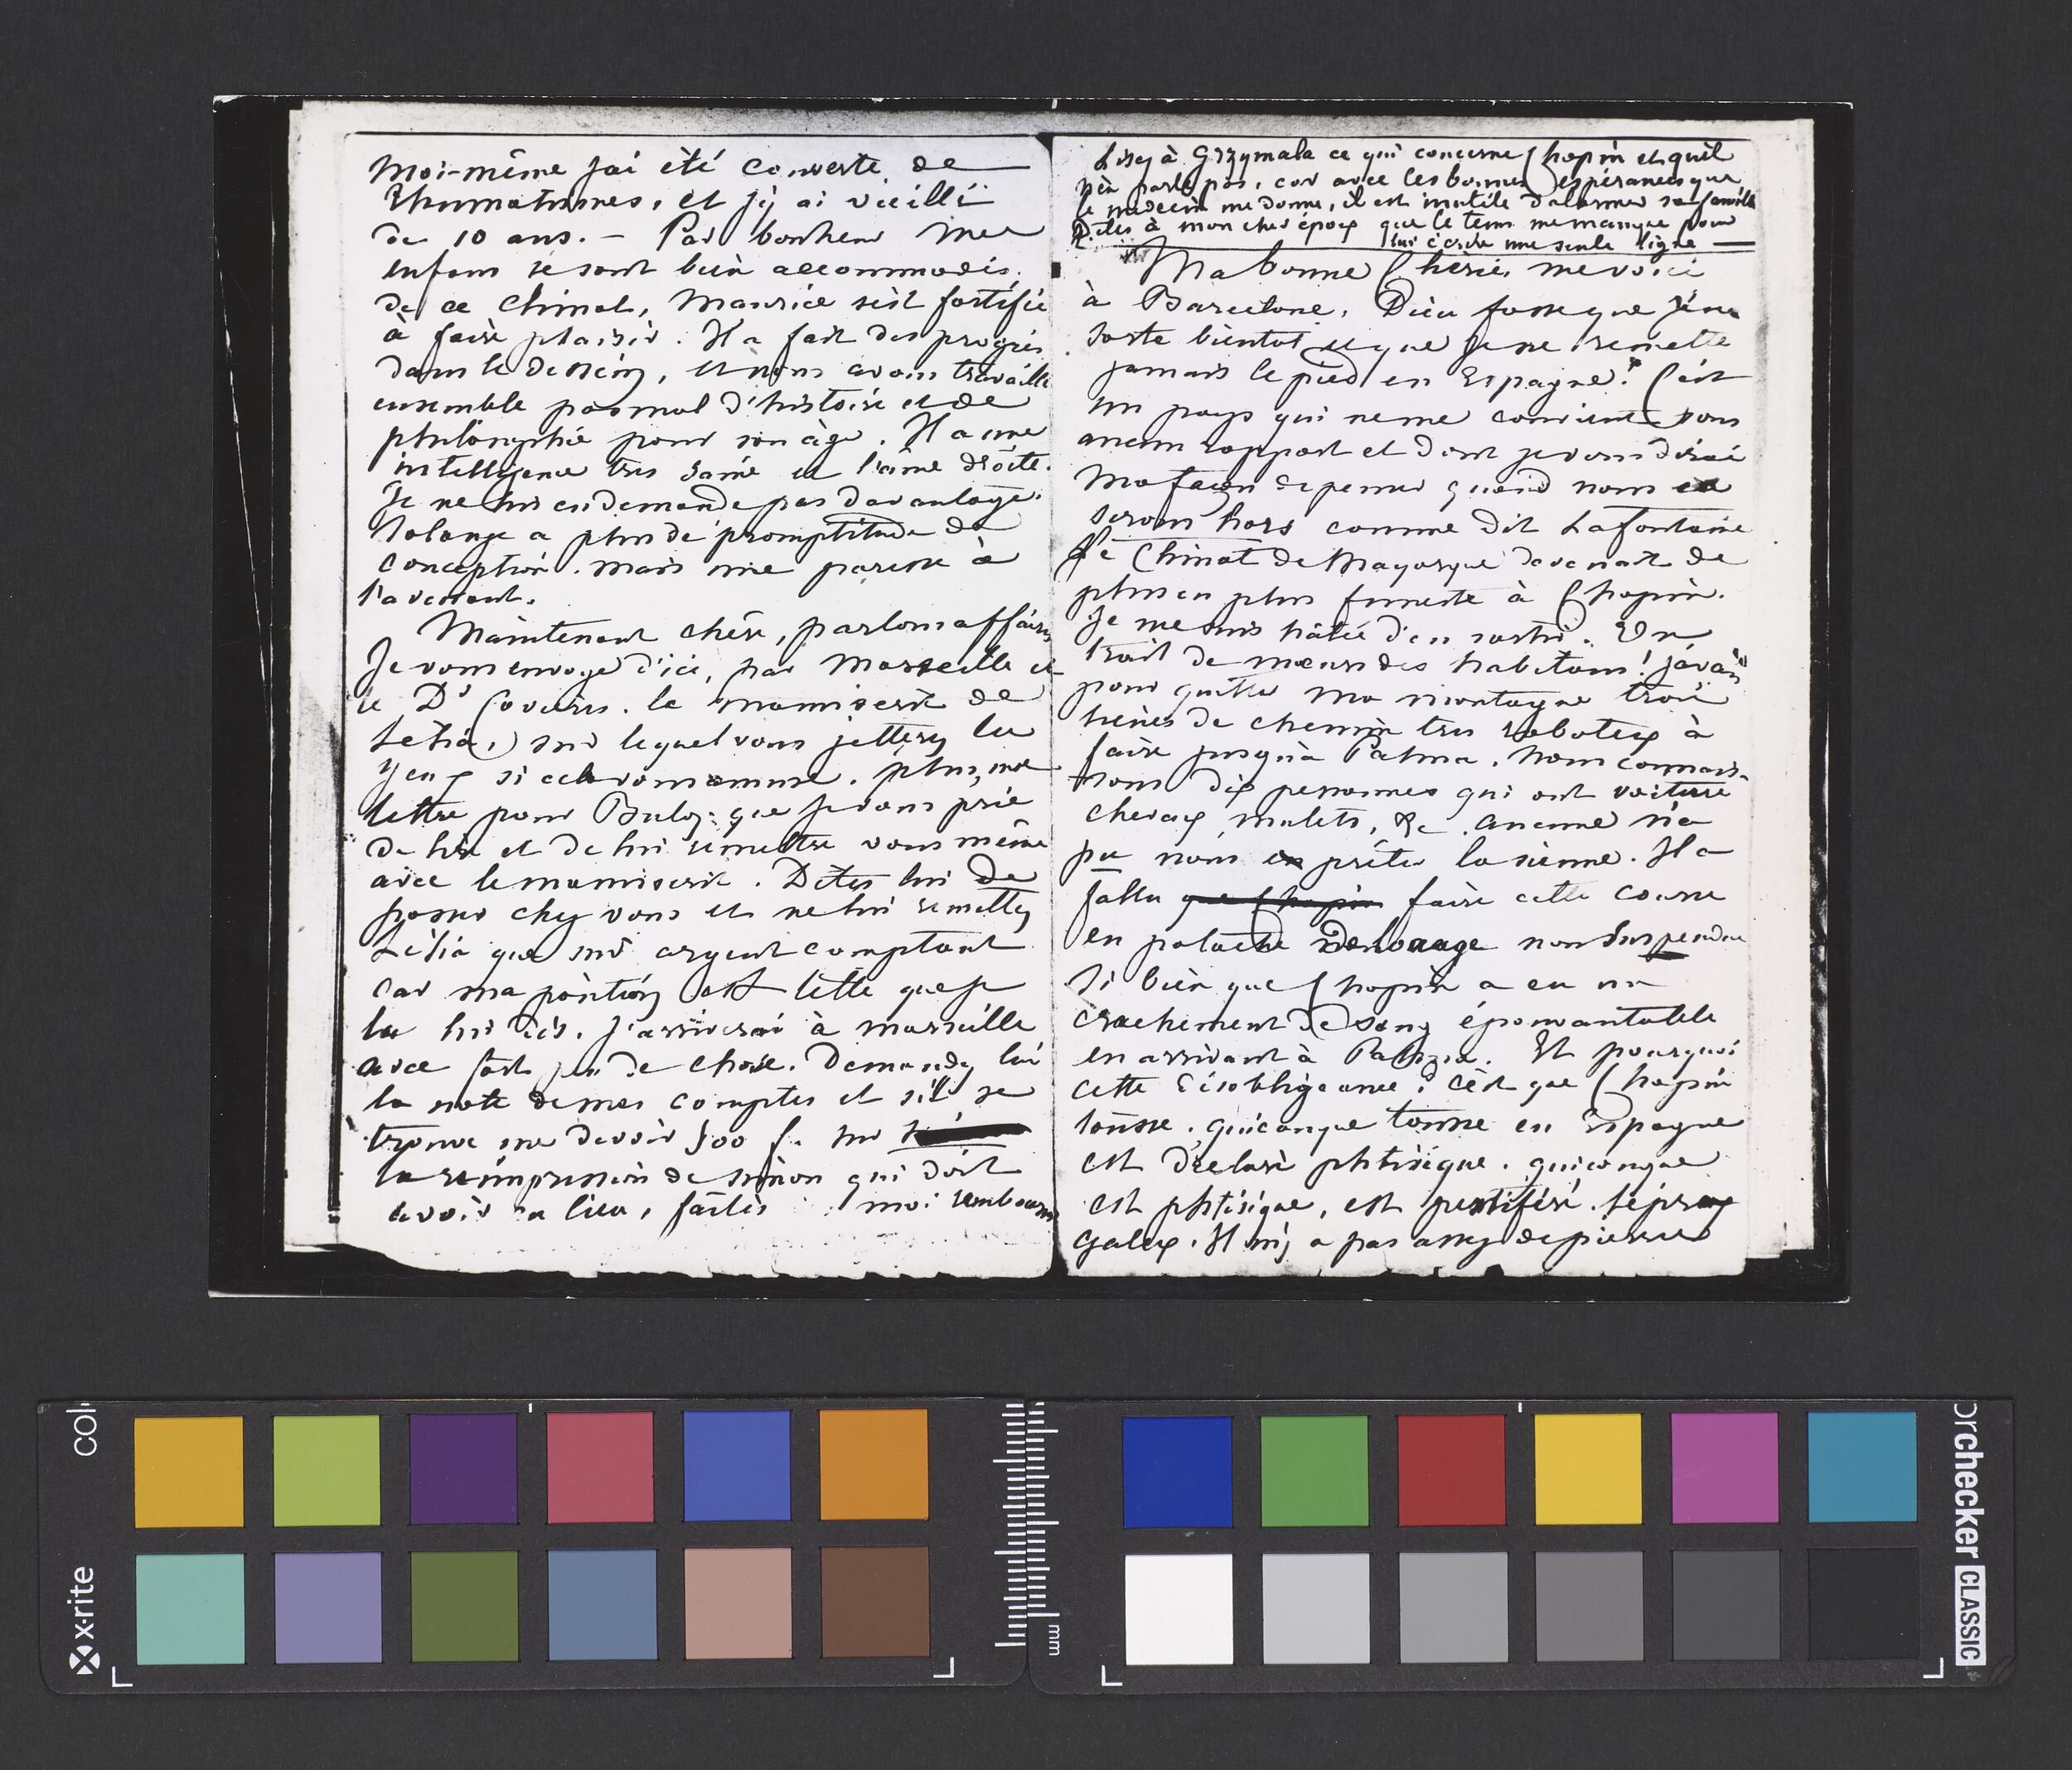 Moi-même j'ai été couverte de
Rhumatismes, et j'y ai vieilli
de 10 ans. — Par bonheur mes
enfans se sont bien accommodés
de ce climat, Maurice s'est fortifié
à faire plaisir. Il a fait des progrès
dans le dessein, et nous avons travaillé
ensemble pas mal d'histoire et de
philosophie pour son âge. Il a une
intelligence très saine et l'âme droite.
Je ne lui en demande pas davantage.
Solange a plus de promptitude de
conception. mais une paresse à
l'avenant.
Maintenant chère, parlons affaires
Je vous envoye d'ici, par Marseille et
le Dr Cauvières. le manuscrit de
Lélia, sur lequel vous jetterez les
yeux si cela vous amuse. plus, une
lettre pour Buloz que je vous prie
de lire et de lui remettre vous même
avec le manuscrit. Dites lui de
passer chez vous et ne lui remettez
Lélia que sur argent comptant
car ma position est telle que je
la lui dis. J'arriverai à marseille
avec fort peu de chose. Demandez lui
la note de mes comptes et s'il se
trouve me devoir 500 f. sur
la réimpression de qui doit
avoir eu lieu, faites moi rembourser
Lisez à Grzymala ce qui concerne Chopin et qu'il
n'en parle pas, car avec les bonnes espérances que
le médecin me donne, il est inutile d'alarmer sa famille
Dites à mon cher époux que le tems me manque pour
lui écrire une seule ligne —
Ma bonne Chérie, me voici
à Barcelone. Dieu fasse que j'en
sorte bientot et que je ne remette
jamais le pied en Espagne! C'est
un pays qui ne me convient sous
aucun rapport et dont je vous dirai
ma façon de penser quand nous en
serons hors comme dit Lafontaine
Le Climat de Mayorque devenait de
plus en plus funeste à Chopin.
Je me suis hâtée d'en sortir. Un
trait de mœurs des habitans! j'avais
pour quitter ma montagne trois
lieues de chemin très raboteux à
faire jusqu'à Palma. Nous connais-
sons dix personnes qui ont voiture
chevaux, mulets, &c. aucune n'a
pu nous en prêter la sienne. Il a
fallu que Chopin faire cette course
en patache de louage non suspendue
Si bien que Chopin a eu un
crachement de sang épouvantable
en arrivant à Palma. Et pourquoi
cette désobligeance? c'est que Chopin
tousse. quiconque tousse en Espagne
est déclaré phtisique. quiconque
est phtisique, est pestiféré. lépreux
galeux. Il n'y a pas assez de pierres
COL
x-rite
mm
orchecker CLASSIC